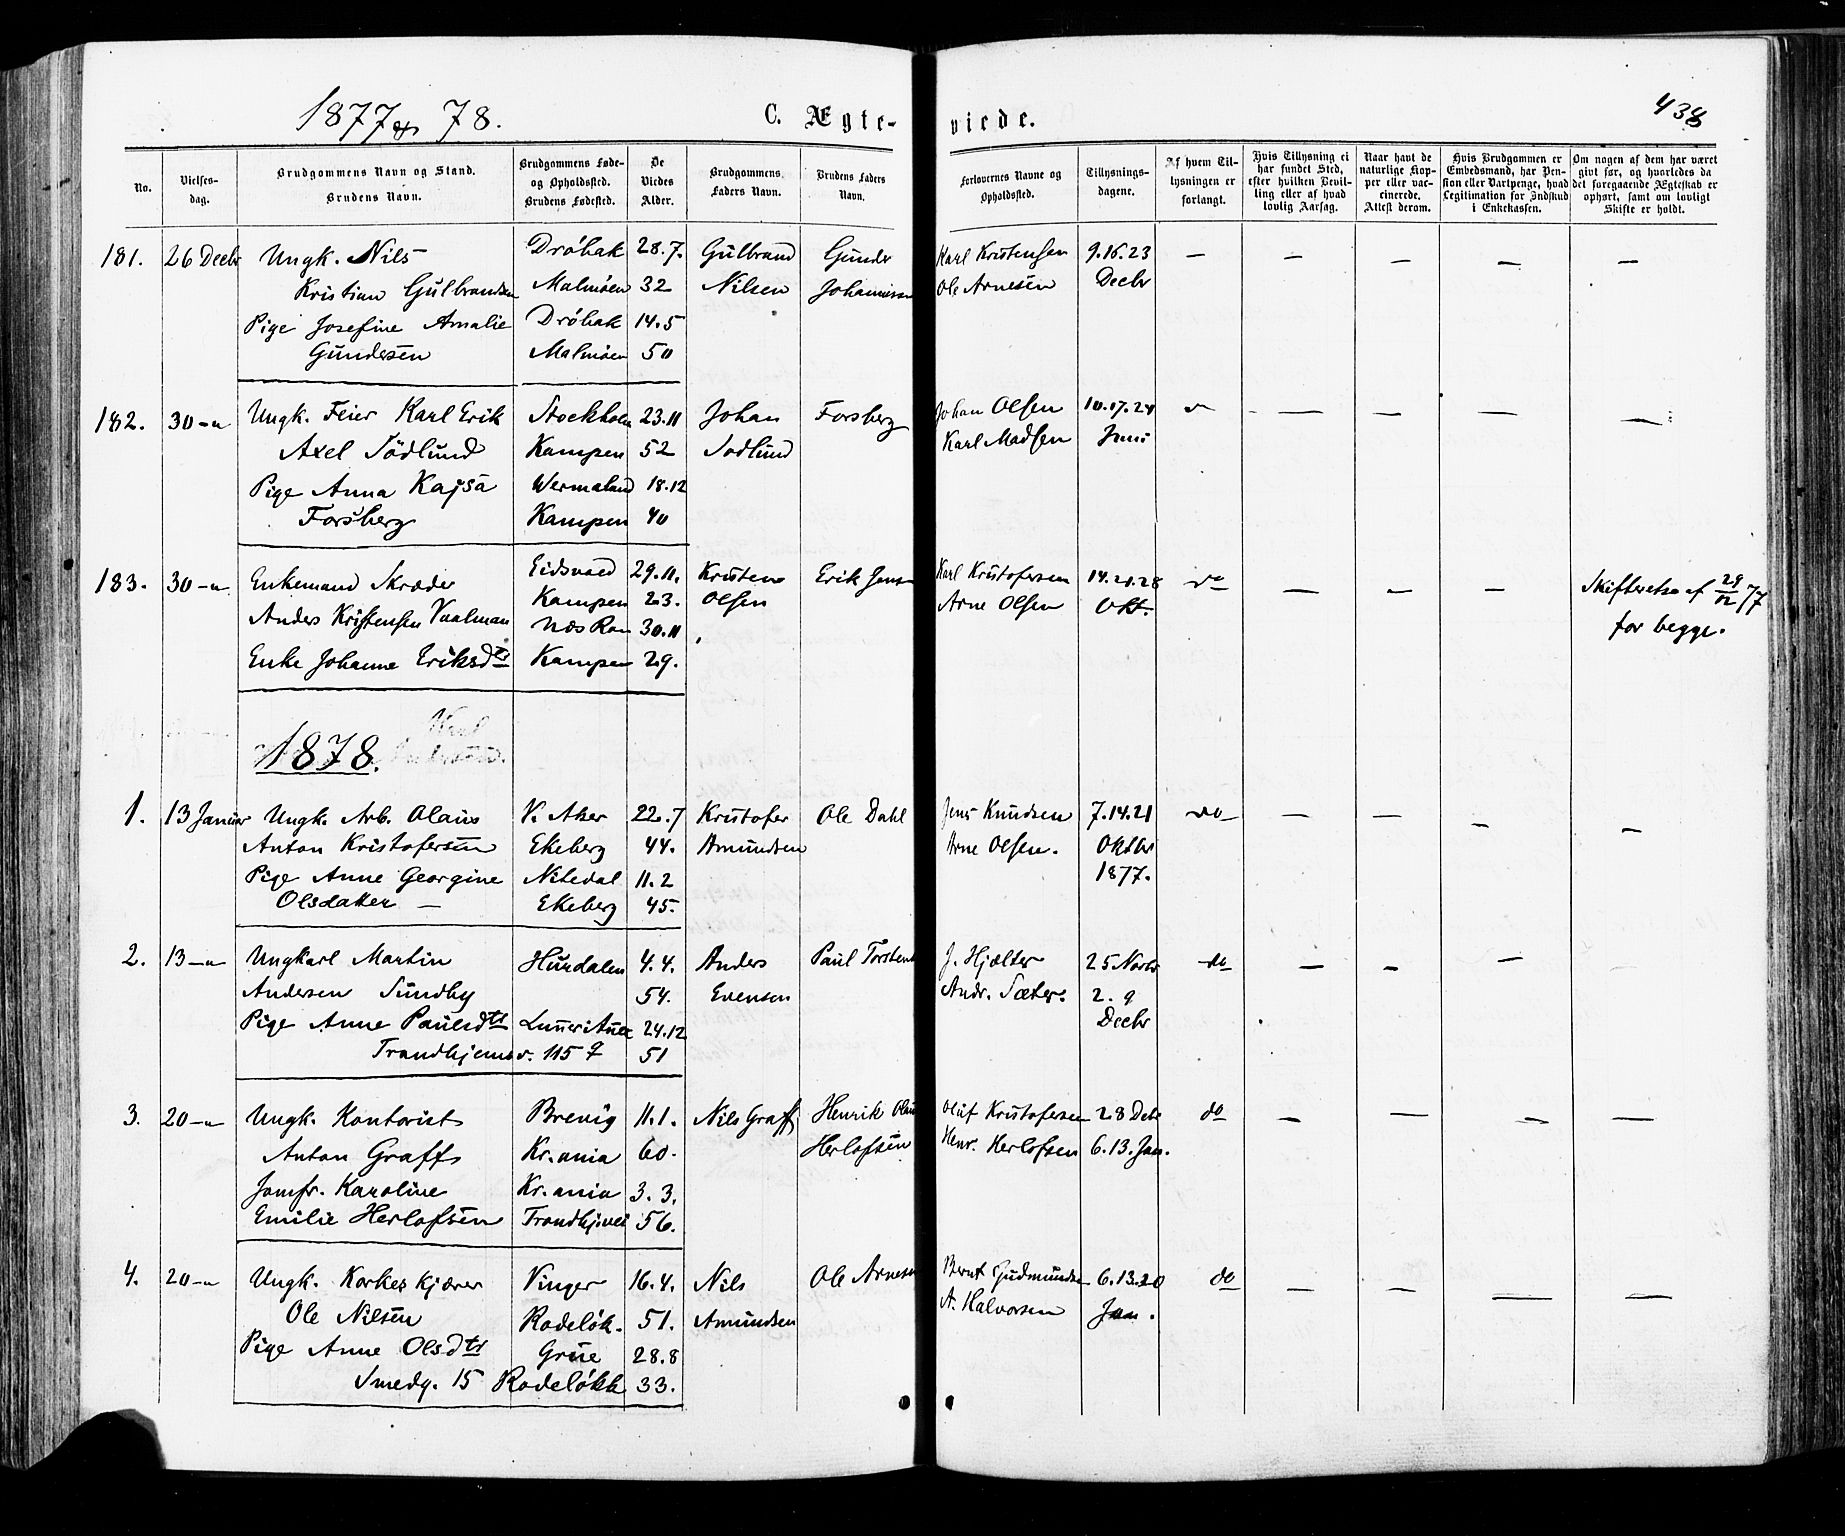 1877 & 78.
C. Ægteviede.
438
No.
Vielsesdag.
Brudgommens Navn og Stand.
Brudens Navn.
Brudgommens Føde- og Opholdssted.
Brudens Fødested.
De Viedes Alder.
Brudgommens Faders Navn.
Brudens Faders Navn.
Forlovernes Navne og Opholdssted.
Tillysningsdagene.
Af hvem Tillysningen er forlangt.
Hvis Tillysning ei har fundet Sted, efter hvilken Bevilling eller af hvad lovlig Aarsag.
Naar havt de naturlige Kopper eller vaccinerede. Attest derom.
Hvis Brudgommen er Embedsmand, har Pension eller Vartpenge, hvad Legitimation for Indskud i Enkekassen.
Om nogen af dem har været givt før, og hvorledes da det foregaaende Ægteskab er ophørt, samt om lovligt Skifte er holdt.
181. 26 Decbr Ungk. Nils Drøbak 28.7. Gulbrand Gunder Karl Kristensen 9.16.23 — — — — —
Kristian Gulbrandsen Malmøen 32 Nilsen Johannesen Ole Arnesen Decbr
Pige Josefine Amalie Drøbak 14.5
Gundersen Malmøen 50
182. 30 - Ungk. Feier Karl Erik Stockholm 23.11 Johan Forsberg Johan Olsen 10.17.24 — — — —
Axel Södlund Kampen 52 Sodlund Karl Madsen Juni
Pige Anna Kajsa Wermaland 18.12
Forsberg Kampen 40
183. 30 - Enkemand Skræder Eidsvold 29.11. Kristen Erik Jens Karl Kristofersen 14.21.28 do — — — Skifteretsa. af 29/12 77
Anders Kristensen Vaalman Kampen 23. Olsen Arne Olsen Okt. for begge.
Næs Rom 30.11
Enke Johanne Eriksdtr Kampen 29.
1878.
1. 13 Januar Ungk. Arb. Olaus V. Aker 22.7 Kristofer Ole Dahl Jens Knudsen 7.14.21 do — — — —
Anton Kristofersen Ekeberg 44. Amundsen Arne Olsen. Oktbr
Pige Anne Georgine Nitedal 11.2 1877.
Olsdatter — Ekeberg 45.
2. 13 - Ungkarl Martin Hurdalen 4.4. Anders Paul Torstens J. Hjælter 25 Novbr do — — —
Andersen Sundby 54. Evensen Andr. Sæter. 2. 9
Pige Anne Paulsdtr 24.12 Decbr
Trondhjemsv. 115 51
3. 20 - Ungk. Kontorist Brevig 11.1. Nils Graff Henrik Olaus Oluf Kristofersen 28 Debr do — — — —
Anton Graff Kr.ania 60. Herlofsen Henr. Herlofsen 6.13. Jan.
Jomfr. Karoline Kr.ania 3.3.
Emilie Herlofsen Trondhjvei 56.
4. 20 - Ungk. Korkeskjærer Vinger 16.4. Nils Ole Arnesen Bernt Gudmundsen 6.13.20 do — — — —
Ole Nilsen Rodeløk. 51. Amundsen A. Halvorsen Jan.
Pige Anne Olsdtr Grue 28.8
Smedg. 15 Rodeløkk 33.